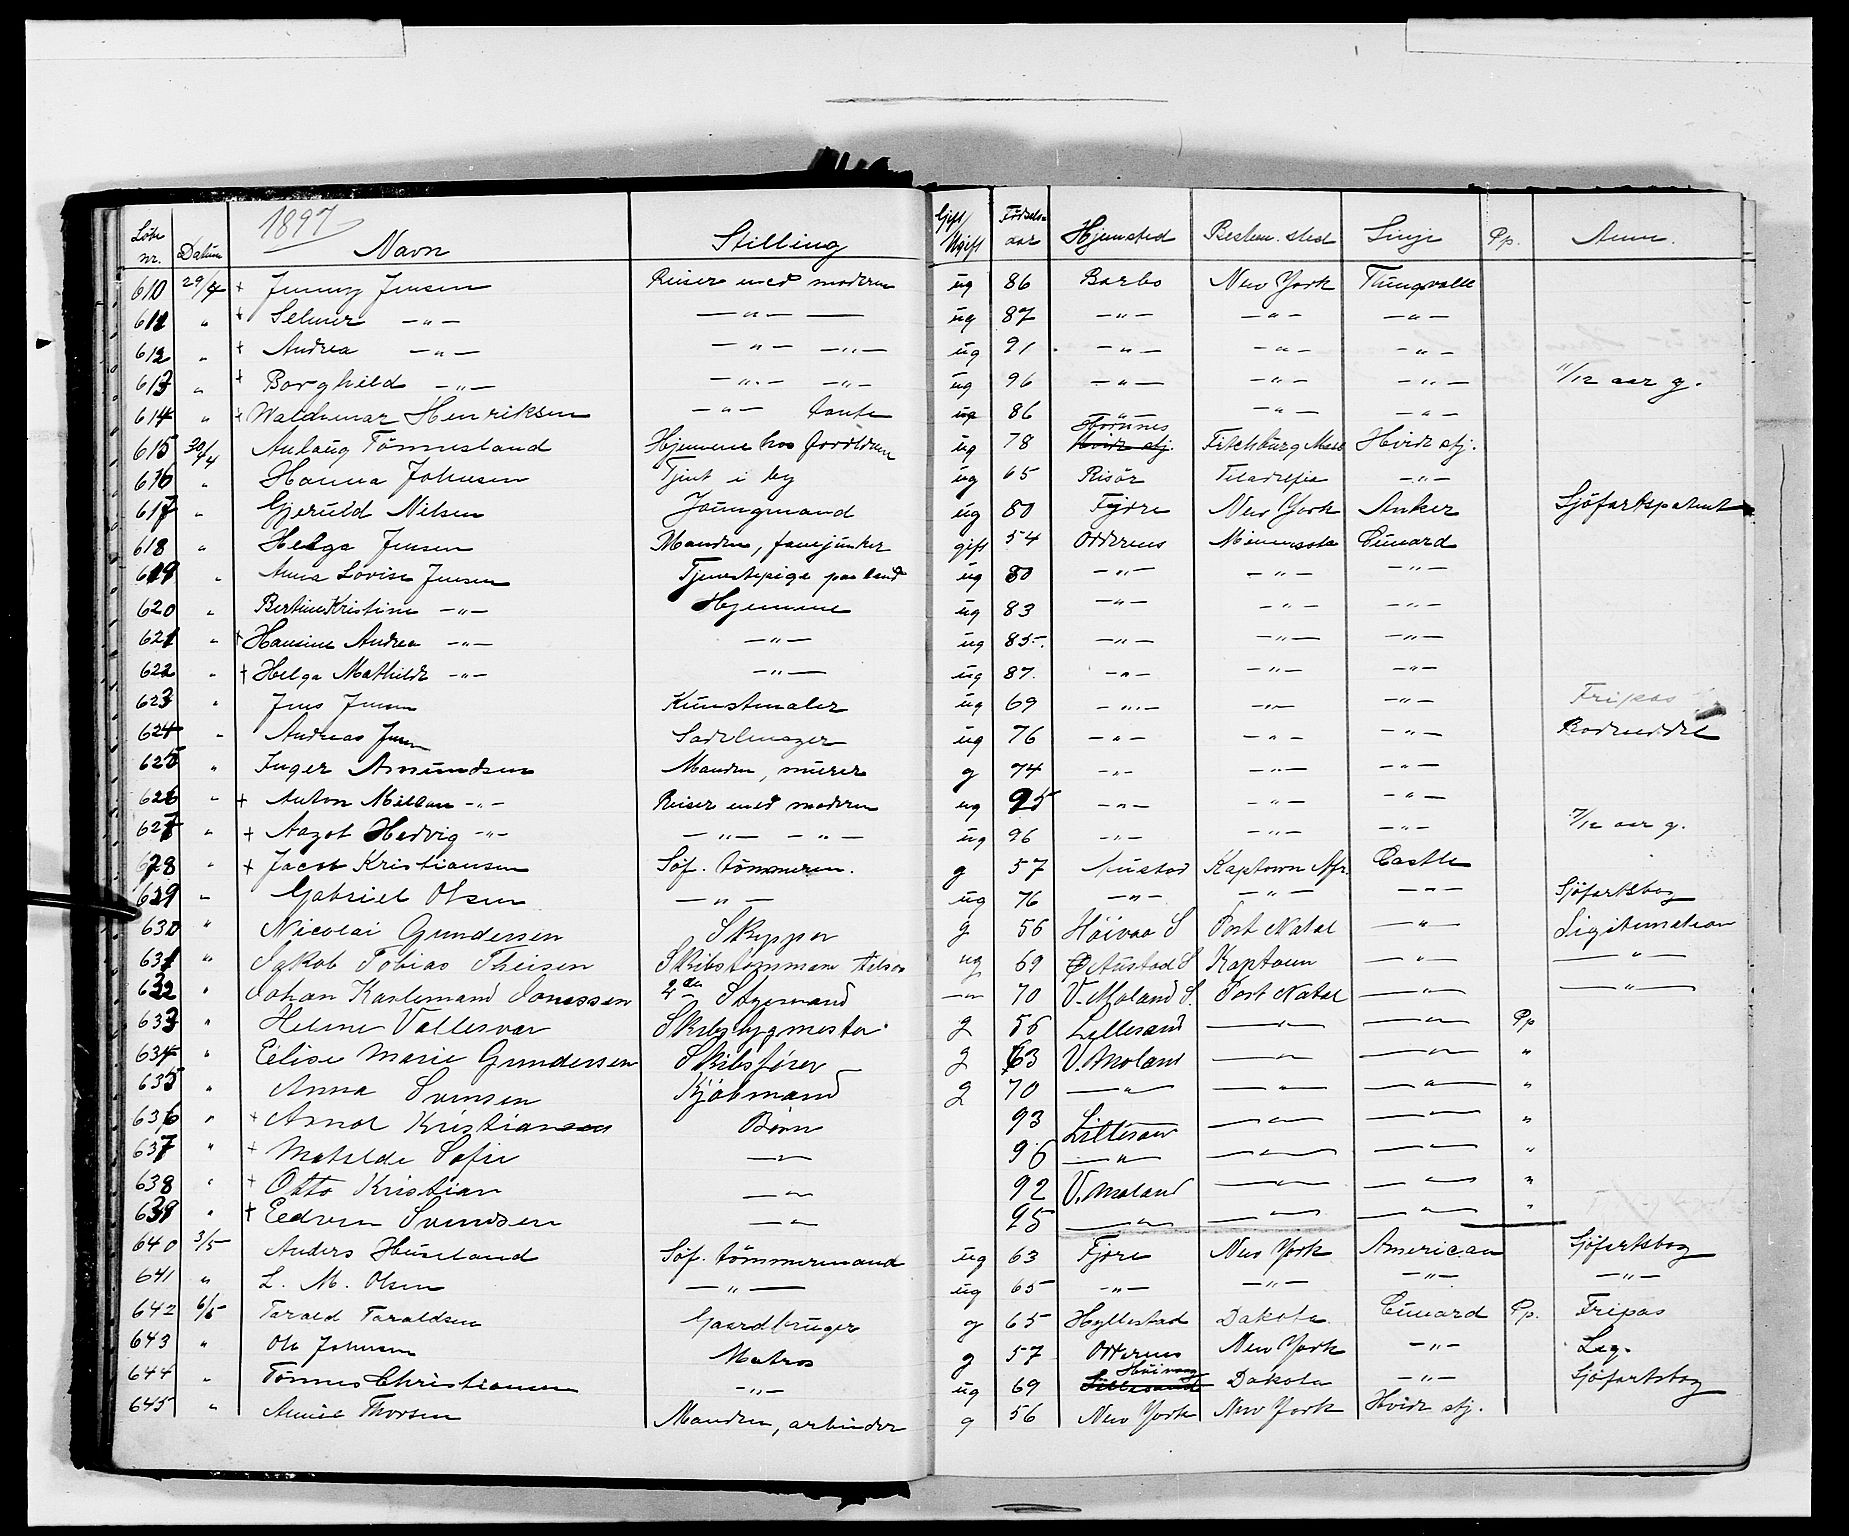 1897
Löbe nr. Datum Navn Stilling Gift/Ugift Fødselsaar Hjemsted Bestem. sted Linje Pp. Anm.
610 29/4 + Jenny Jensen Reiser med moderen ug 86 Barbo New York Thingvalla
611 " + Selmer —"— —"— — ug 87 —"— —"— —"—
612 " + Andrea —"— —"— —"— ug 91 —"— —"— —"—
613 " + Borghild —"— —"— —"— ug 96 —"— —"— —"— 11/12 aar g.
614 " + Waldemar Henriksen —"— tante ug 86 —"— —"— —"—
615 30/4 Anlaug Tönnesland Hjemme hos forældrene ug 78 Hornnes Fitchburg Mass Hvide stj.
616 " Hanna Johnsen Tjent i by ug 65 Risör Filadelfia —"—
617 " Gjeruld Nilsen Joungmand ug 80 Fjære New York Anker Sjöfartspatent
618 " Helga Jensen Manden, fanejunker gift 54 Odderens Minnesota Cunard
619 " Anna Lovise Jensen Tjenestepige paa land ug 80 —"— —"— —"—
620 " Bertine Kristine —"— Hjemme ug 83 —"— —"— —"—
621 " + Hansine Andrea —"— —"— ug 85 —"— —"— —"—
622 " + Helga Mathilde —"— —"— ug 87. —"— —"— —"—
623 " Jens Jensen Kunstmaler ug 69 —"— —"— —"— Fripas
624 " Andreas Jensen Sadelmager ug 76 —"— —"— —"— Rodseddel
625 " Inger Amundsen Manden, murer g 74 —"— —"— —"—
626 " + Anton Millan —"— Reiser med moderen ug 95 —"— —"— —"—
627 " + Aagot Hedvig —"— —"— —"— ug 96 —"— —"— —"— 7/12 aar g.
628 " + Jacob Kristiansen Söf. tömmerm. g 57 Austad Kaptown Afr. Castle
629 " Gabriel Olsen —"— ug 76 —"— —"— —"— Sjöfartsbog
630 " Nicolai Gundersen Skipper g 56 Höivaag S Port Natal —"— Ligitimation
631 " Jakob Tobias Theisen Skibstömmerm ug 69 Austad S Kaptoun —"— —"—
632 " Johan Karlemand Jonassen 2den Styrmand —"— 70 V. Moland S. Port Natal —"— —"—
633 " Helene Vallesvær Skibsbygmester g 56 Lillesand —"— —"— Pp
634 " Elise Marie Gundersen Skibsfører g 63 V. Moland —"— —"— "
635 " Anna Svensen Kjöbmand g 70 —"— —"— —"— "
636 " + Arnol Kristiansen Børn 93 Lillesand —"— —"— "
637 " + Matilde Sofie —"— 96 —"— —"— —"— "
638 " + Otto Kristian —"— 92 V. Moland —"— —"— "
639 " + Edven Svendsen —"— 95 —"— —"— —"— "
640 3/5 Anders Huseland Söf. tömmermand ug 63 Fjære New York American Sjöfartsbog
641 " L. M. Olsen —"— ug 65 —"— —"— —"— —"—
642 6/5 Tarald Taraldsen Gaardbruger g 65 Hyllestad Dakota Cunard Pp. Fripas
643 " Ole Johnsen Matros g 57 Odderens New York —"— Leg.
644 " Tönnes Christiansen —"— ug 69 Lillesand Höivaag Dakota —"— Sjöfartsbog
645 " Amalie Thorsen Manden, arbeider g 56 New York New York Hvide stj.